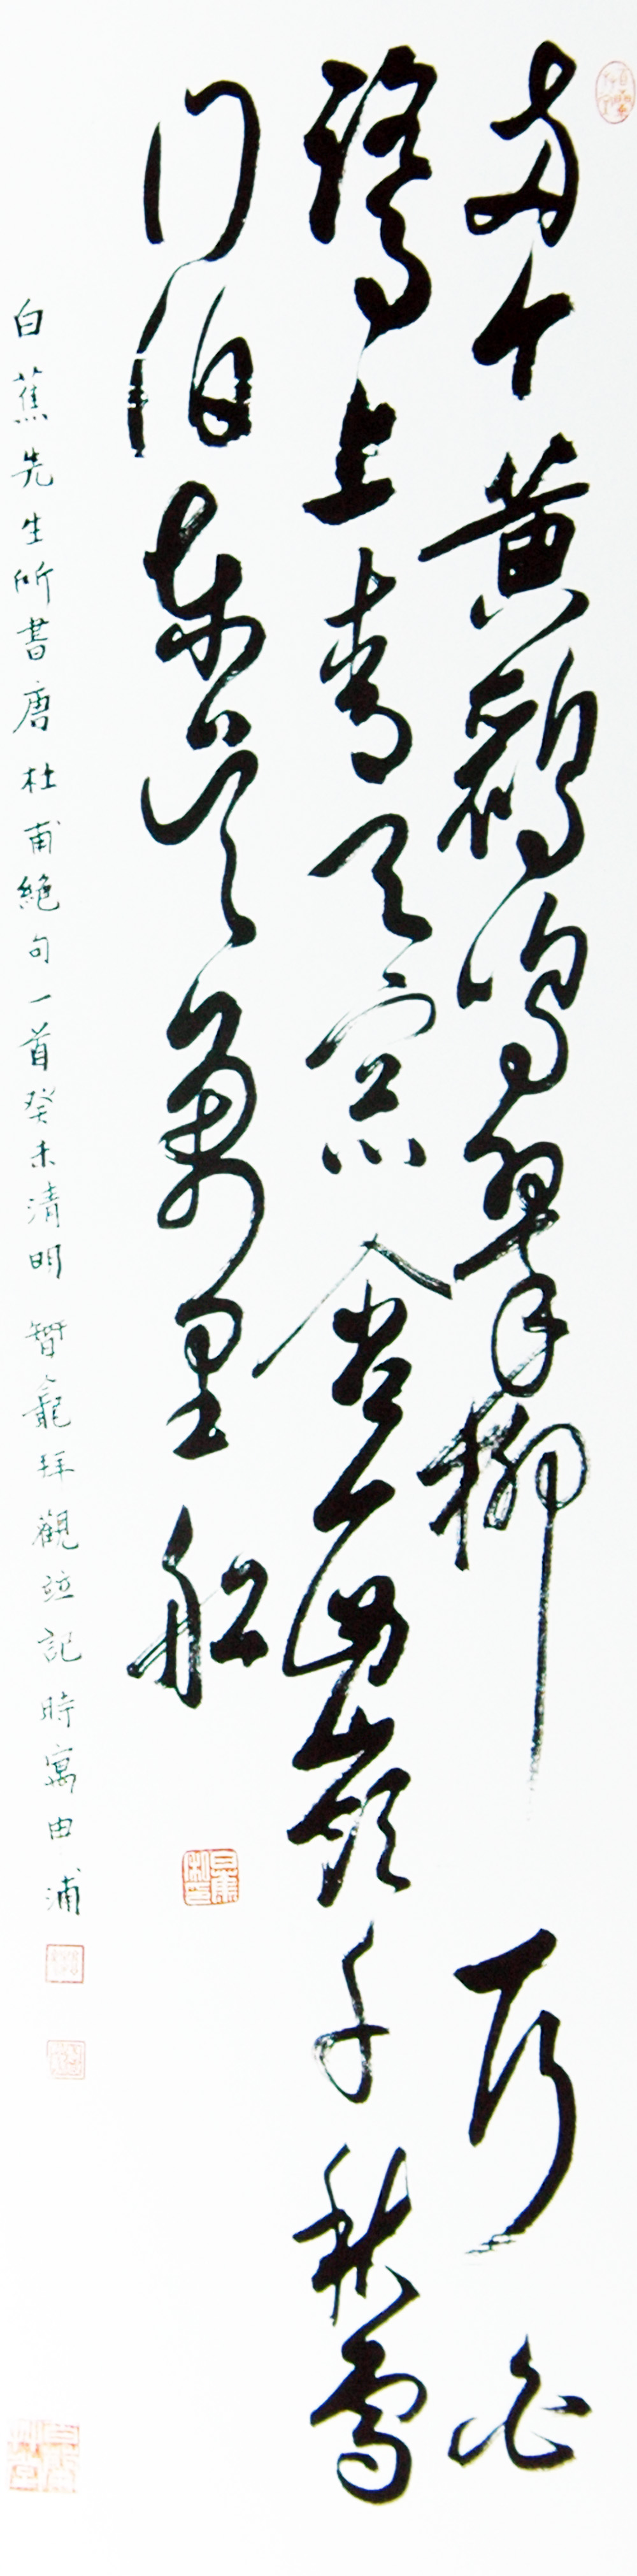 兩个黃鸝鳴翠柳一行白
鷺上青天窗含西嶺千秋雪
門泊東吳萬里船
白蕉先生所書唐杜甫絕句一首癸未清明智龕拜觀竝記時寓申浦